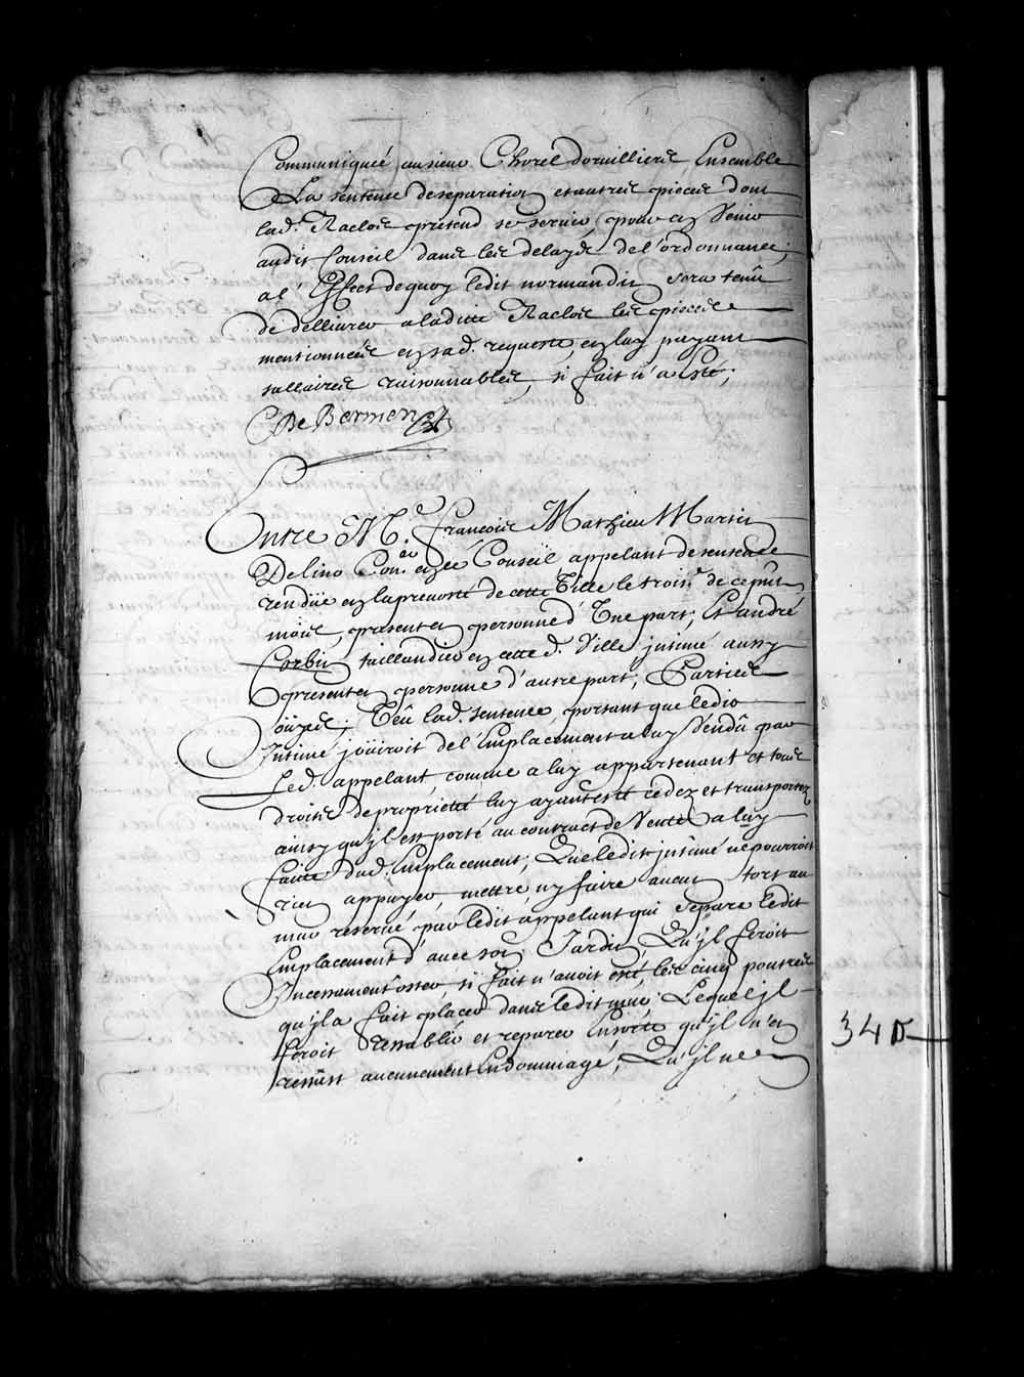 Communiqueé au sieur Chorel dorvilliers Ensemble
La sentence de separation et autres pieces dont
lad. Raclos pretend se servir, pour en Venir
audit Conseil dans les delays de l'ordonnance;
a l'Effect dequoy ledit normandin sera tenu
de dellivrer a ladite Raclos les pieces
mentionnées en sad. requeste, en luy payant
sallaires raisonnables, si fait n'a Esté;
C De Bermen
Entre Me. François Mathieu Martin
Delino Coner. en ce Conseil appelant de sentence
rendüe en la prevosté de cette Ville le troise. de ce pnt
mois, present en personne d'Une part; Et andré
Corbin taillandier en cette d. Ville intimé aussy
present en personne d'autre part; Parties
oüyes; Veu lad. sentence, portant que ledit
Intimé joüiroit de l'Emplacement a luy Vendû par
Led. appelant, comme a luy appartenant et tous
droits de proprieté luy ayant esté cedez et transportez
ainsy qu'jl est porté au contract de Vente a luy
faite dud. Emplacement; Que ledit jntimé ne pourroit
rien appuyer, mettre ny faire aucun tort au
mur reservé par ledit appelant qui separe ledit
Emplacement d'avec son Jardin, Qu'jl feroit
Incessamment oster si fait n'avoit esté, les cinq poutres
qu'jl a fait placer dans ledit mur, Lequel jl
feroit restablir et reparer Ensorte qu'jl n'en
restast aucunement Endommagé; Qu'jl ne
34 D